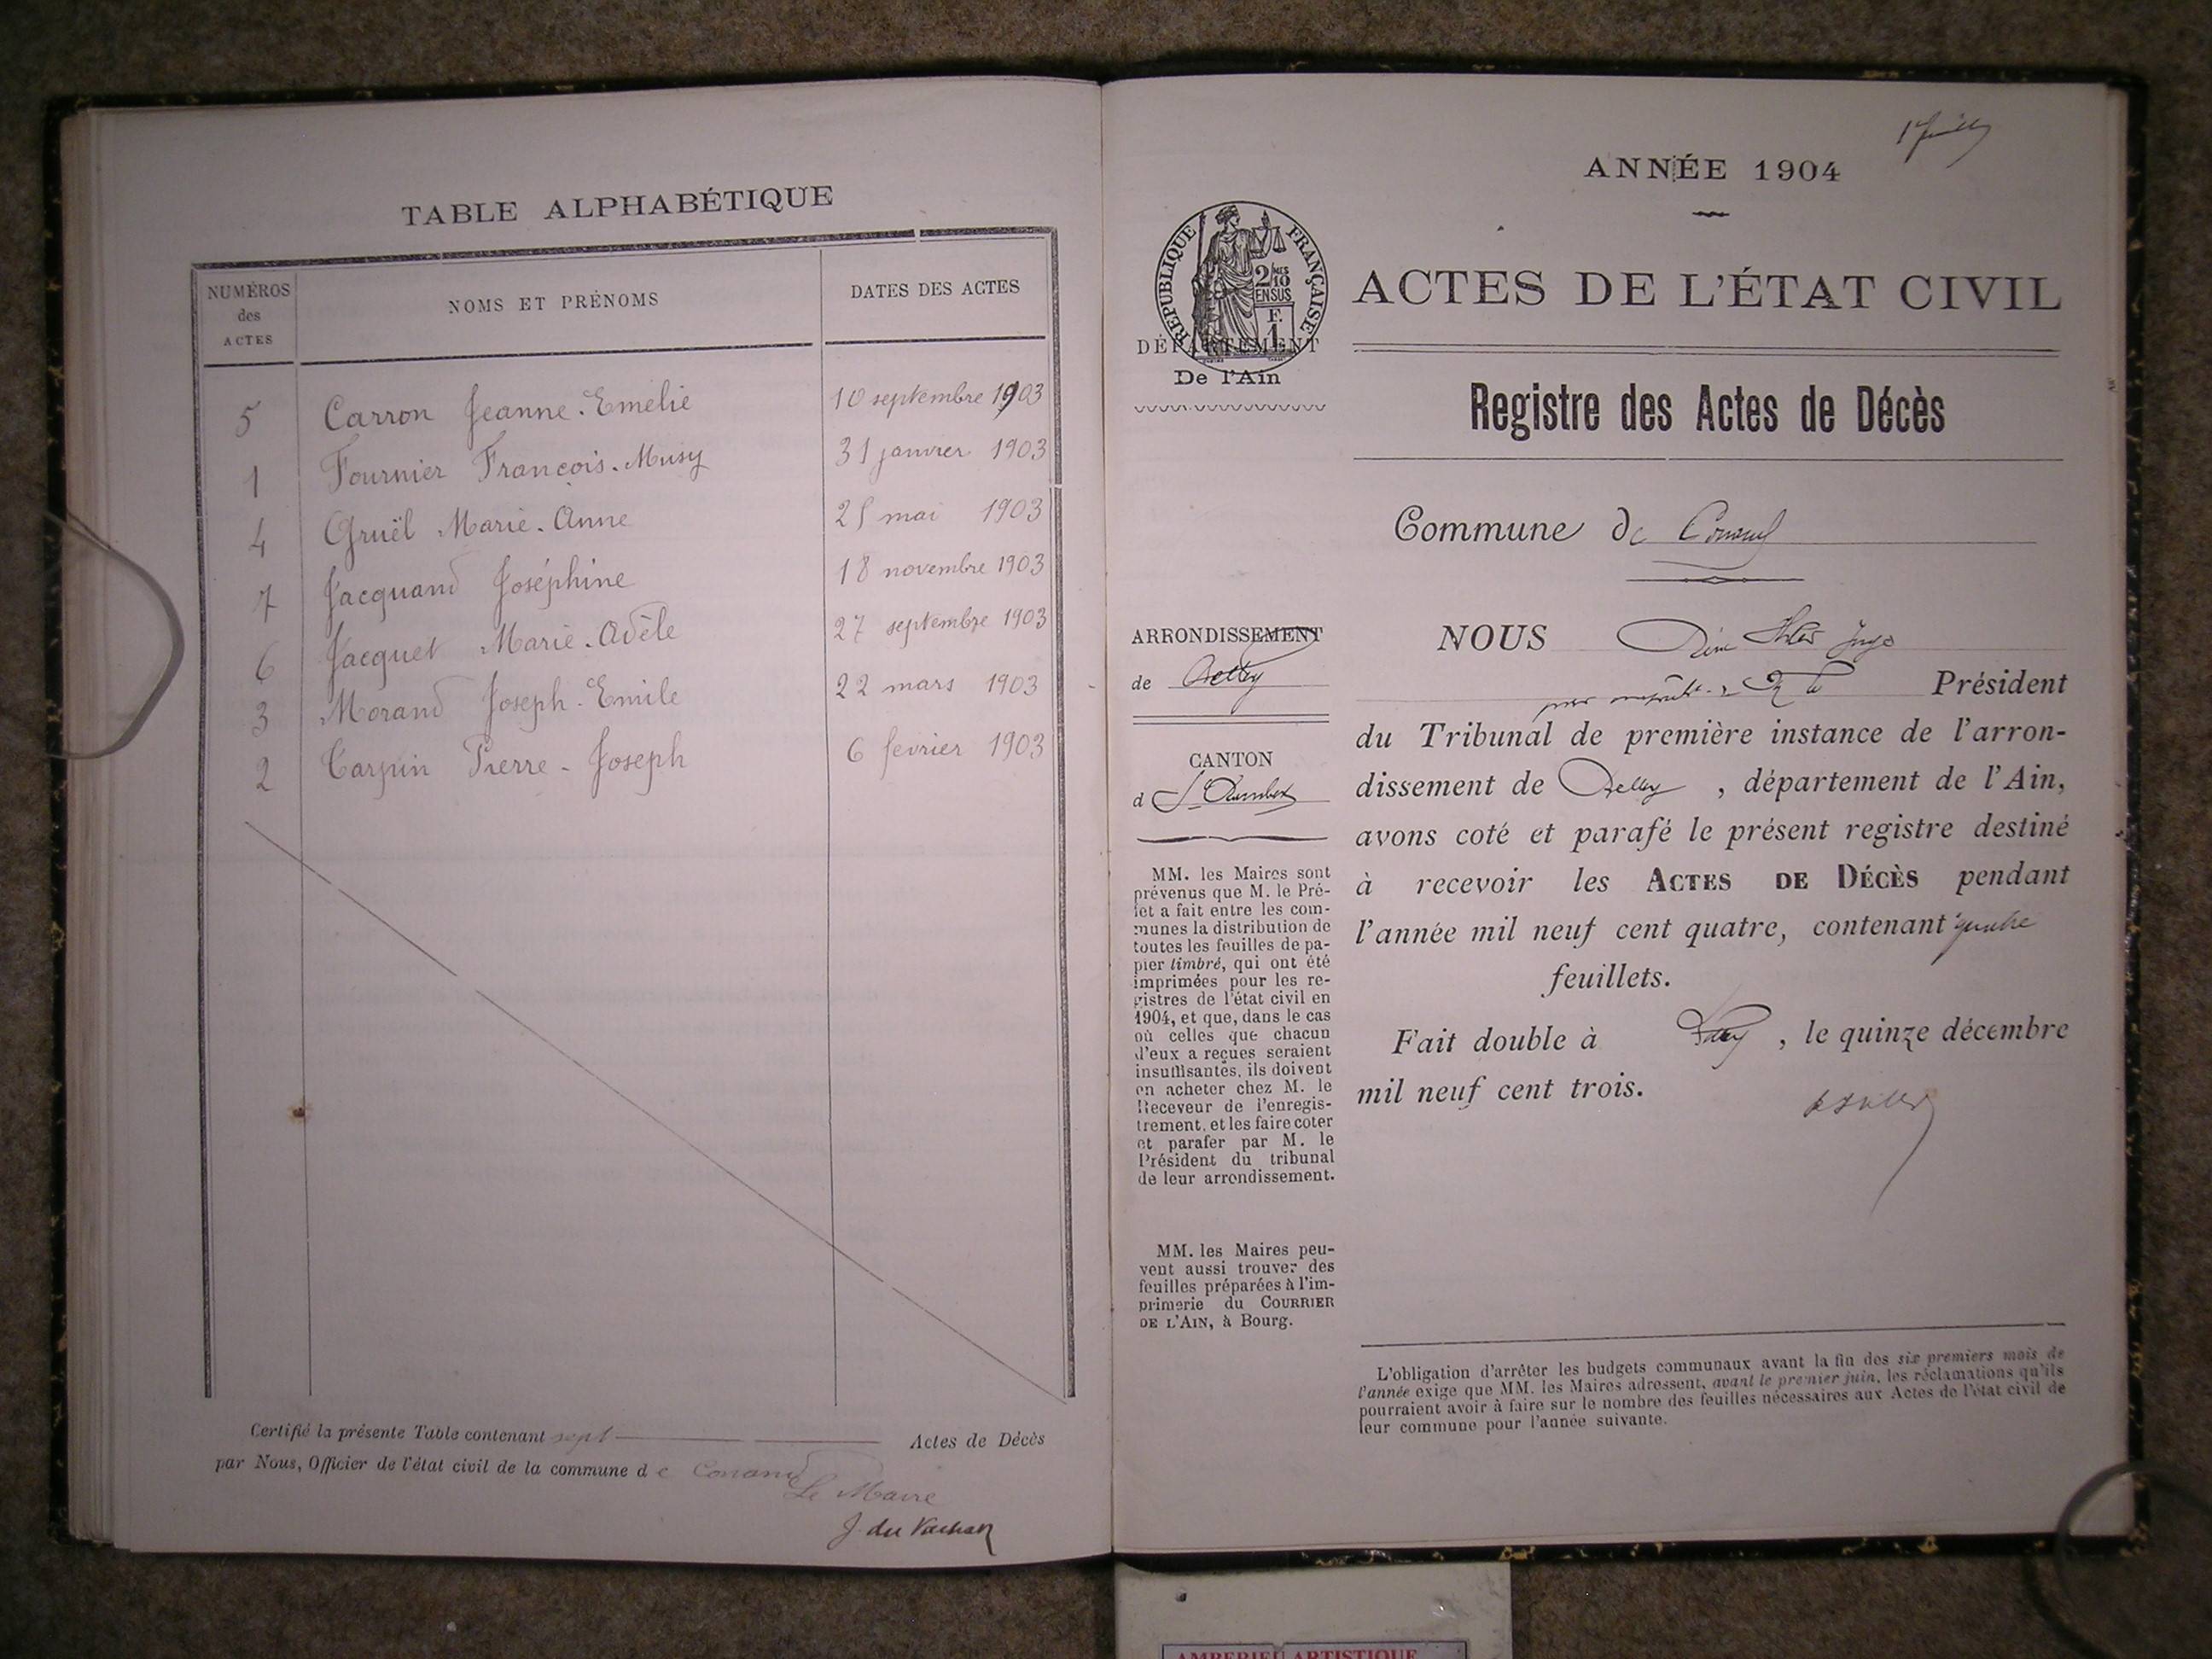 TABLE ALPHABÉTIQUE
NUMÉROS des ACTES
NOMS ET PRÉNOMS
DATES DES ACTES
5 Carron Jeanne-Emélie 10 septembre 1903
1 Fournier François-Musy 31 janvier 1903
4 Gruël Marie-Anne 25 mai 1903
7 Jacquand Joséphine 18 novembre 1903
6 Jacquet Marie-Adèle 27 septembre 1903
3 Morand Joseph-Emile 22 mars 1903
2 Carpin Pierre-Joseph 6 fevrier 1903
Certifié la présente Table contenant sept Actes de Décès
par Nous, Officier de l'état civil de la commune de Conand
Le Maire
ANNÉE 1904
RÉPUBLIQUE FRANÇAISE
2/10 EN SUS
F. 1
DÉPARTEMENT
De l'Ain
ACTES DE L'ÉTAT CIVIL
Registre des Actes de Décès
Commune de Conand
ARRONDISSEMENT
de Belley
CANTON
d St Rambert
MM. les Maires sont
prévenus que M. le Pré-
fet a fait entre les com-
munes la distribution de
toutes les feuilles de pa-
pier timbré, qui ont été
imprimées pour les re-
gistres de l'état civil en
1904, et que, dans le cas
où celles que chacun
d'eux a reçues seraient
insuffisantes, ils doivent
en acheter chez M. le
Receveur de l'enregis-
trement, et les faire coter
et parafer par M. le
Président du tribunal
de leur arrondissement.
MM. les Maires peu-
vent aussi trouver des
feuilles préparées à l'im-
primerie du COURRIER
DE L'AIN, à Bourg.
NOUS Juge
Président
du Tribunal de première instance de l'arron-
dissement de Belley, département de l'Ain,
avons coté et parafé le présent registre destiné
à recevoir les ACTES DE DÉCÈS pendant
l'année mil neuf cent quatre, contenant quatre
feuillets.
Fait double à Belley, le quinze décembre
mil neuf cent trois.
L'obligation d'arrêter les budgets communaux avant la fin des six premiers mois de
l'année exige que MM. les Maires adressent, avant le premier juin, les réclamations qu'ils
pourraient avoir à faire sur le nombre des feuilles nécessaires aux Actes de l'état civil de
leur commune pour l'année suivante.
AMBERIEU ARTISTIQUE